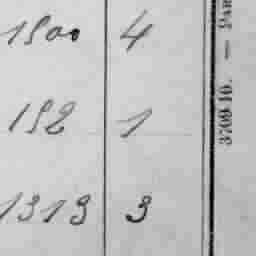 1500 4
152 1
1313 3
3709 10. — PAR